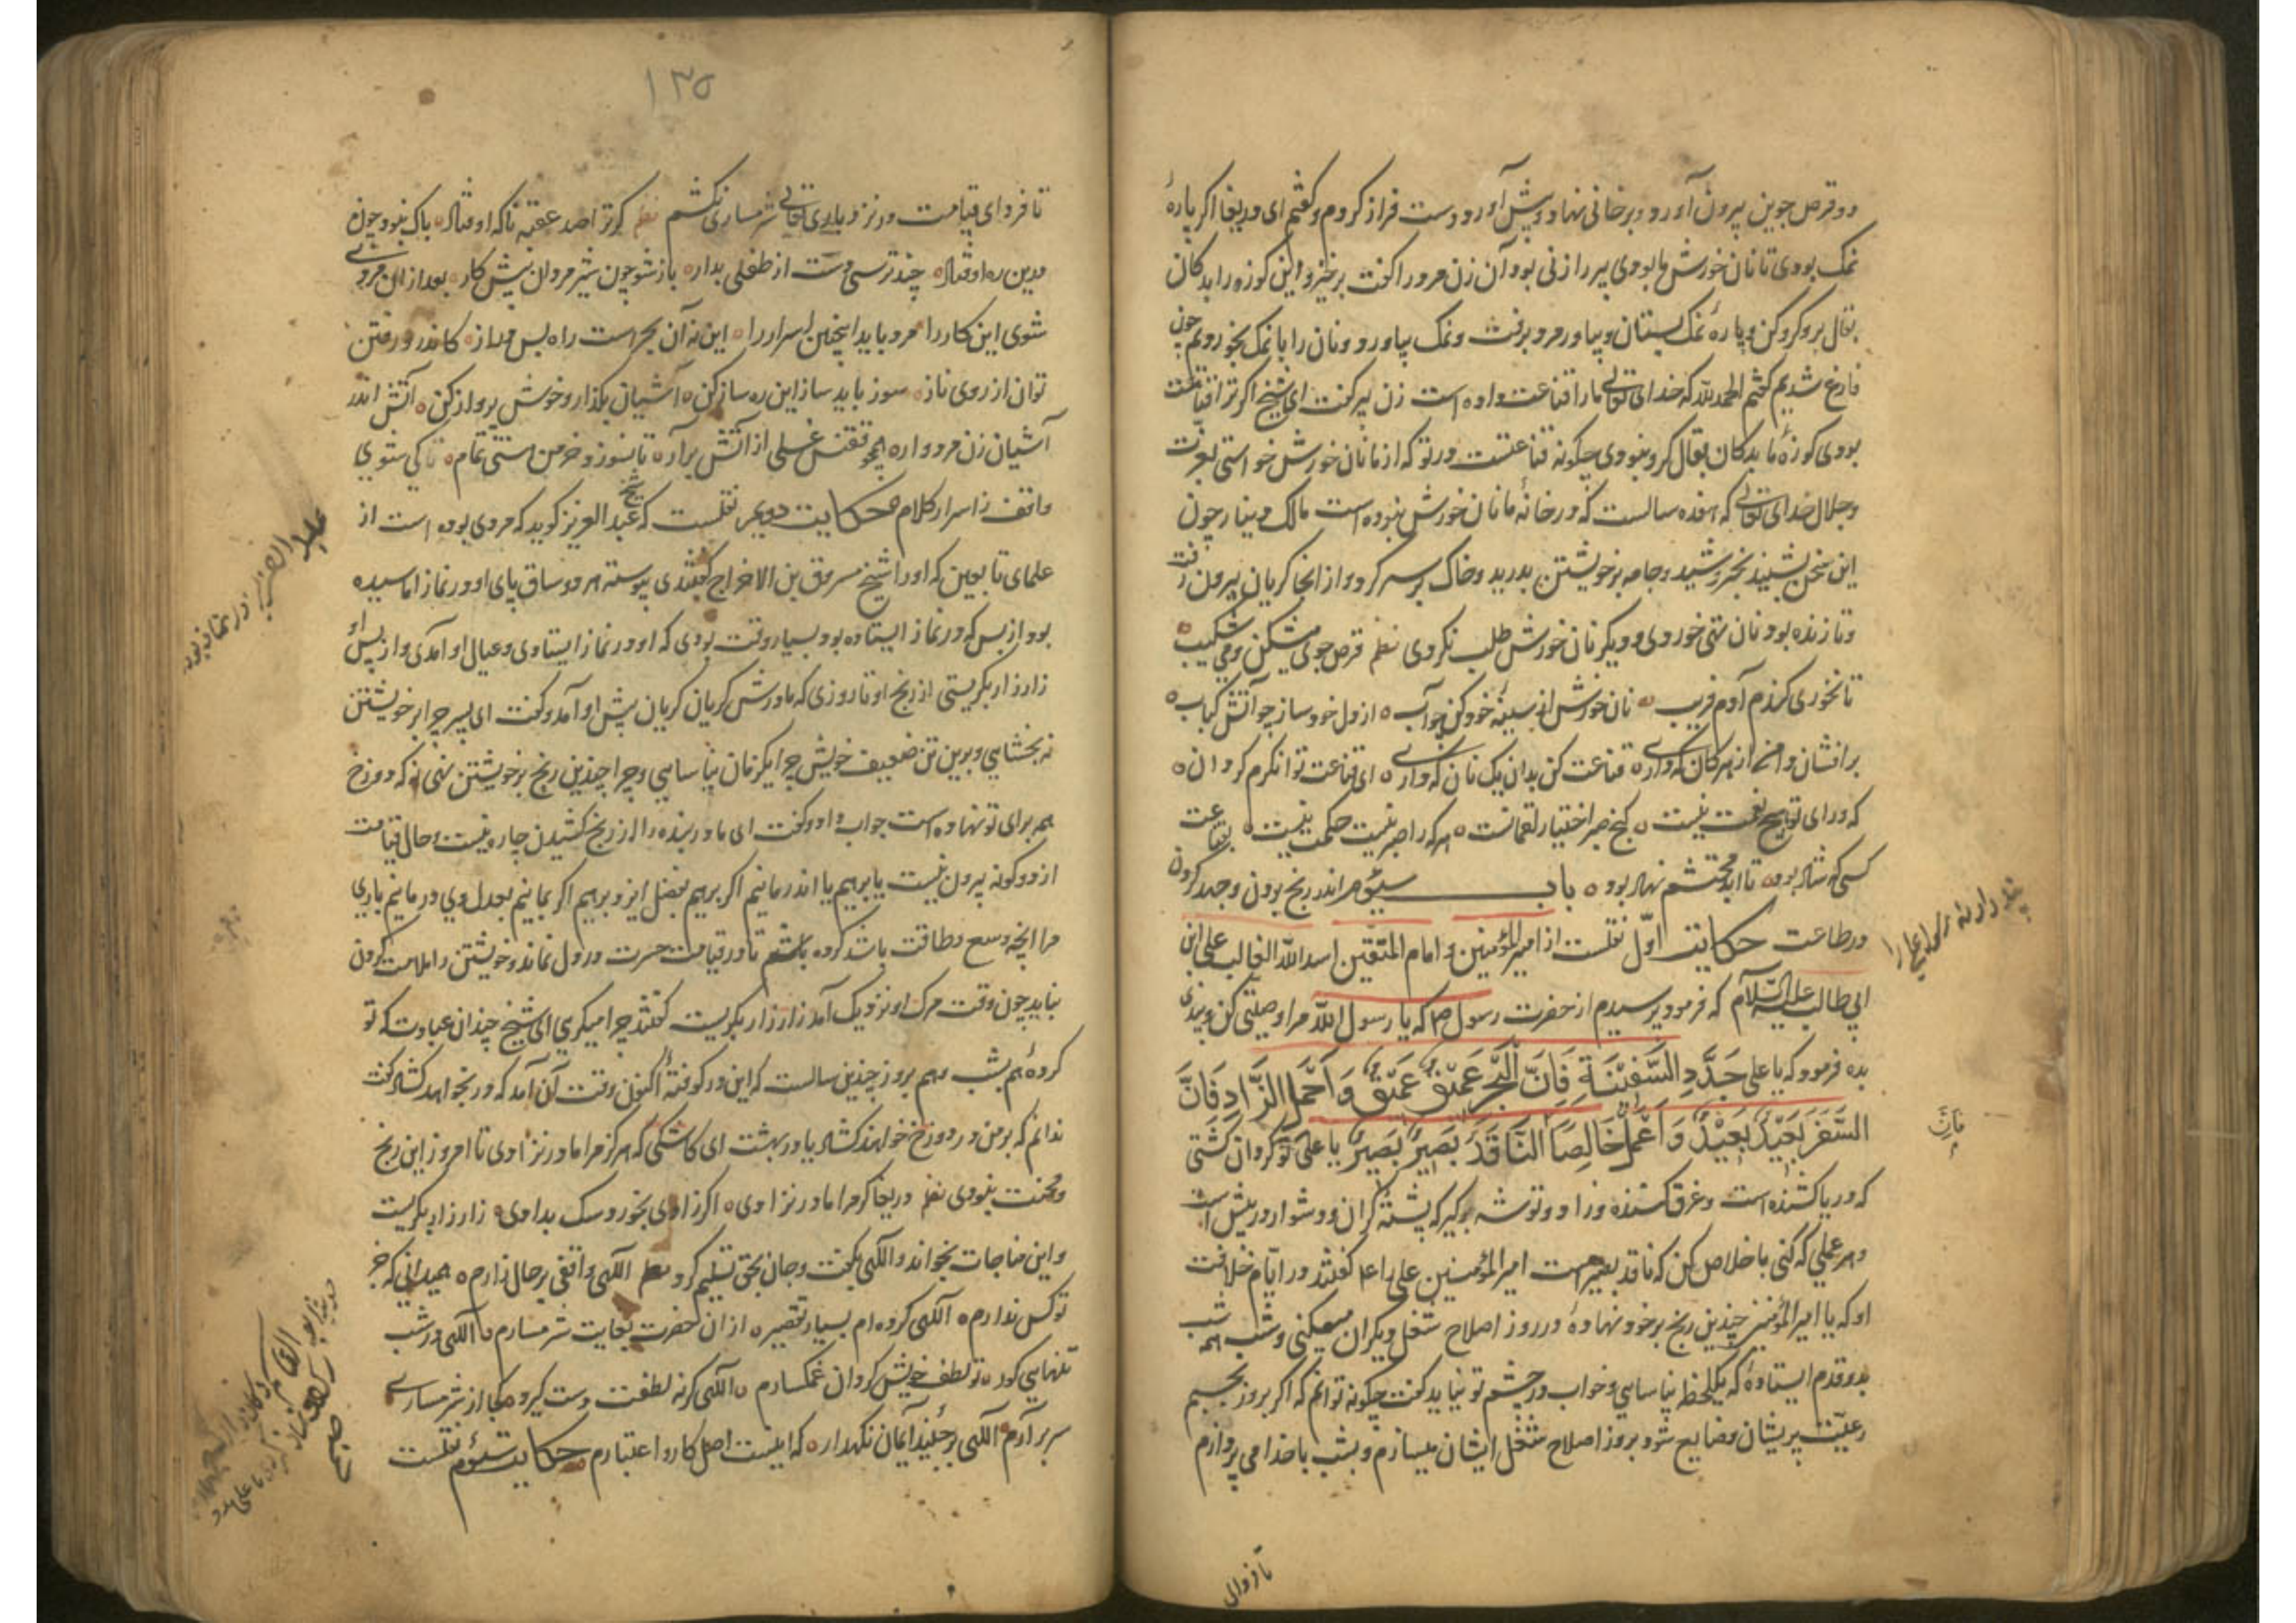 دو قرص جوین بیرون آورد و بر خانی نهاد و پیش آورد و دست فراز کردم و گفتم ای دریغا اگر پارهٔ
نمک بودی تا نان خورش ما بودی پیر را زنی بود آن زن مرد را گفت برخیز و این کوزه را بدکان
بقال برو گرو کن و پارهٔ نمک بستان و بیاور مرد برفت و نمک بیاورد و نان را با نمک بخوردیم چون
فارغ شدیم گفتم الحمد لله که خدای تعالی ما را قناعت داده است زن پیر گفت ای شیخ اگر ترا قناعت
بودی کوزهٔ ما بدکان بقال گرو نبودی چگونه قناعتست در تو که از ما نان خورش خواستی بعزت
و جلال خدای تعالی که هفده سالست که در خانهٔ ما نان خورش نبوده است مالک دینار چون
این سخن بشنید بخروشید و جامه بر خویشتن بدرید و خاک بر سر کرد و از انجا گریان بیرون رفت
و تا زنده بود نان تهی خوردی و دیگر نان خورش طلب نکردی نظم قرص جوی میشکن و می شکیب
تا نخوری گندم آدم فریب نان خورش از سینهٔ خود کن چو آب از دل خود ساز چو آتش کباب
قناعت کن بدان یک نان که داری ای قناعت توانگرم گردان
که ورای تو هیچ نعمت نیست کنج صبر اختیار لقمانست هر که را صبر نیست حکمت نیست بقناعت
کسی که شاد بود تا ابد محتشم نهاد بود باب سیؤم اندر رنج بردن و جهد کردن
در طاعت حکایت اوّل نقلست از امیر المؤمنین و امام المتقین اسد الله الغالب علی ابن
ابی طالب علیه السلام که فرمود پرسیدم از حضرت رسول ص که یا رسول الله مرا وصیتی کن و پندی
بده فرمود که یا علی جَدِّدِ السَّفِیْنَةِ فَاِنَّ الْبَحْرَ عَمِیْقٌ عَمِیْقٌ وَ احْمِلِ الزَّادِ فَاِنَّ
السَّفَرَ بَعِیْدٌ بَعِیْدٌ وَ اَعْمَلْ خَالِصًا النَّاقَدَ بَصِیْرٌ بَصِیْرٌ یا علی تو گردان کشتی
که دریا کشنده است و غرق کننده و زاد و توشه برگیر که پشته گران و دشوار در پیش است
و هر عملی که کنی باخلاص کن که ناقد بصیر است امیر المؤمنین علی را ع گفتند در ایّام خلافت
او که یا امیر المؤمنین چندین رنج بر خود نهادهٔ در روز اصلاح شغل دیگران میکنی و شب همه شب
بدو قدم ایستادهٔ که یکلحظه نیاسایی و خواب در چشم تو نیاید گفت چگونه توانم که اگر بروز بخسبم
رعیّت پریشان و ضایع شود بروز اصلاح شغل ایشان میسازم و بشب با خدا می پردازم
تا فردای
فَاِنَّ
۱۳۵
تا فردای قیامت در نزد باری تعالی شرمساری نکشم نظم گر ترا صد عقبه ناگه اوفتاد باک نبود چون
درین ره اوفتاد چند ترسی دست از طفلی بدار باز شو چون شیر مردان پیش کار بعد ازان مردی
شوی این کار را مرد باید اینچنین اسرار را این نه آن بحر است راه بس دراز کاندرو رفتن
توان از روی ناز سوز باید ساز این ره ساز کن آشیان بگذار و خوش پرواز کن آتش اندر
آشیان زن مردواره همچو ققنس غسلی از آتش برآر تا نسوزد خرمن هستی تمام کی شوی
واقف ز اسرار کلام حکایت دویم نقلست که شیخ عبد العزیز گوید که مردی بوده است از
علمای تابعین که او را شیخ مسروق بن الاخراج گفتندی پیوسته هر دو ساق پای او در نماز اماسیده
بود از بس که در نماز ایستاده بود بسیار وقت بودی که او در نماز ایستادی و عیال او آمدی و از پس او
زار زار بگریستی از رنج او تا روزی که مادرش گریان گریان پیش او آمد و گفت ای پسر چرا بر خویشتن
نه بخشایی و برین تن ضعیف خویش چرا یکزمان نیاسایی و چرا چندین رنج بر خویشتن نهی نه که دوزخ
همه برای تو نهاده است جواب داد و گفت ای مادر بنده را از رنج کشیدن چاره نیست و حال قیامت
از دو گونه بیرون نیست یا برهیم یا اندر مانیم اگر برهیم بفضل ایزد برهیم اگر بمانیم بعدل وی در مانیم باری
مرا آنچه وسع و طاقت باشد کرده باشم تا در قیامت حسرت در دل نماند و خویشتن را ملامت کردن
نباید چون وقت مرگ او نزدیک آمد زار زار بگریست گفتند چرا میگریی ای شیخ چندان عبادت که تو
کردهٔ هم بشب و هم بروز چندین سالست که این در کوفتهٔ اکنون وقت آن آمد که در بخواهد گشاد گفت
ندانم که بر من در دوزخ خواهند گشاد یا در بهشت ای کاشکی که هرگز مرا مادر نزادی تا امروز این رنج
و محنت نبودی نظم دریغا گر مرا مادر نزادی اگر زادی بخورد سگ بدادی زار زار بگریست
و این مناجات بخواند و الکهی بگفت و جان بحق تسلیم کرد نظم الکهی واقفی بر حال زارم همیدانی که جز
تو کس ندارم الکهی کرده ام بسیار تقصیر ازان حضرت بغایت شرمسارم الکهی در شب
تنهایی گور تو لطف خویش گردان غمگسارم الکهی گر نه لطفت دست گیرد کجا از شرمساری
سر برآرم الکهی ایمان نگهدار که اینست اصل کار و اعتبارم حکایت سیؤم نقلست
عبد العزیز در نماز بوده